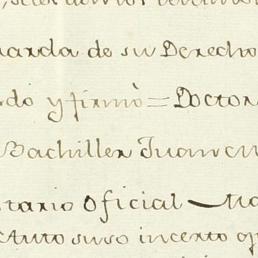 uarda de su Derecho
do y firmò = Doctor
Bachiller Juan
tario Oficial
suso incerto